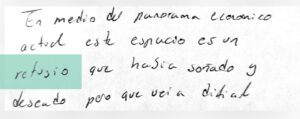 En medio del panorama economico
actual este espacio es un
refugio que había soñado y
deseado pero que veia dificil